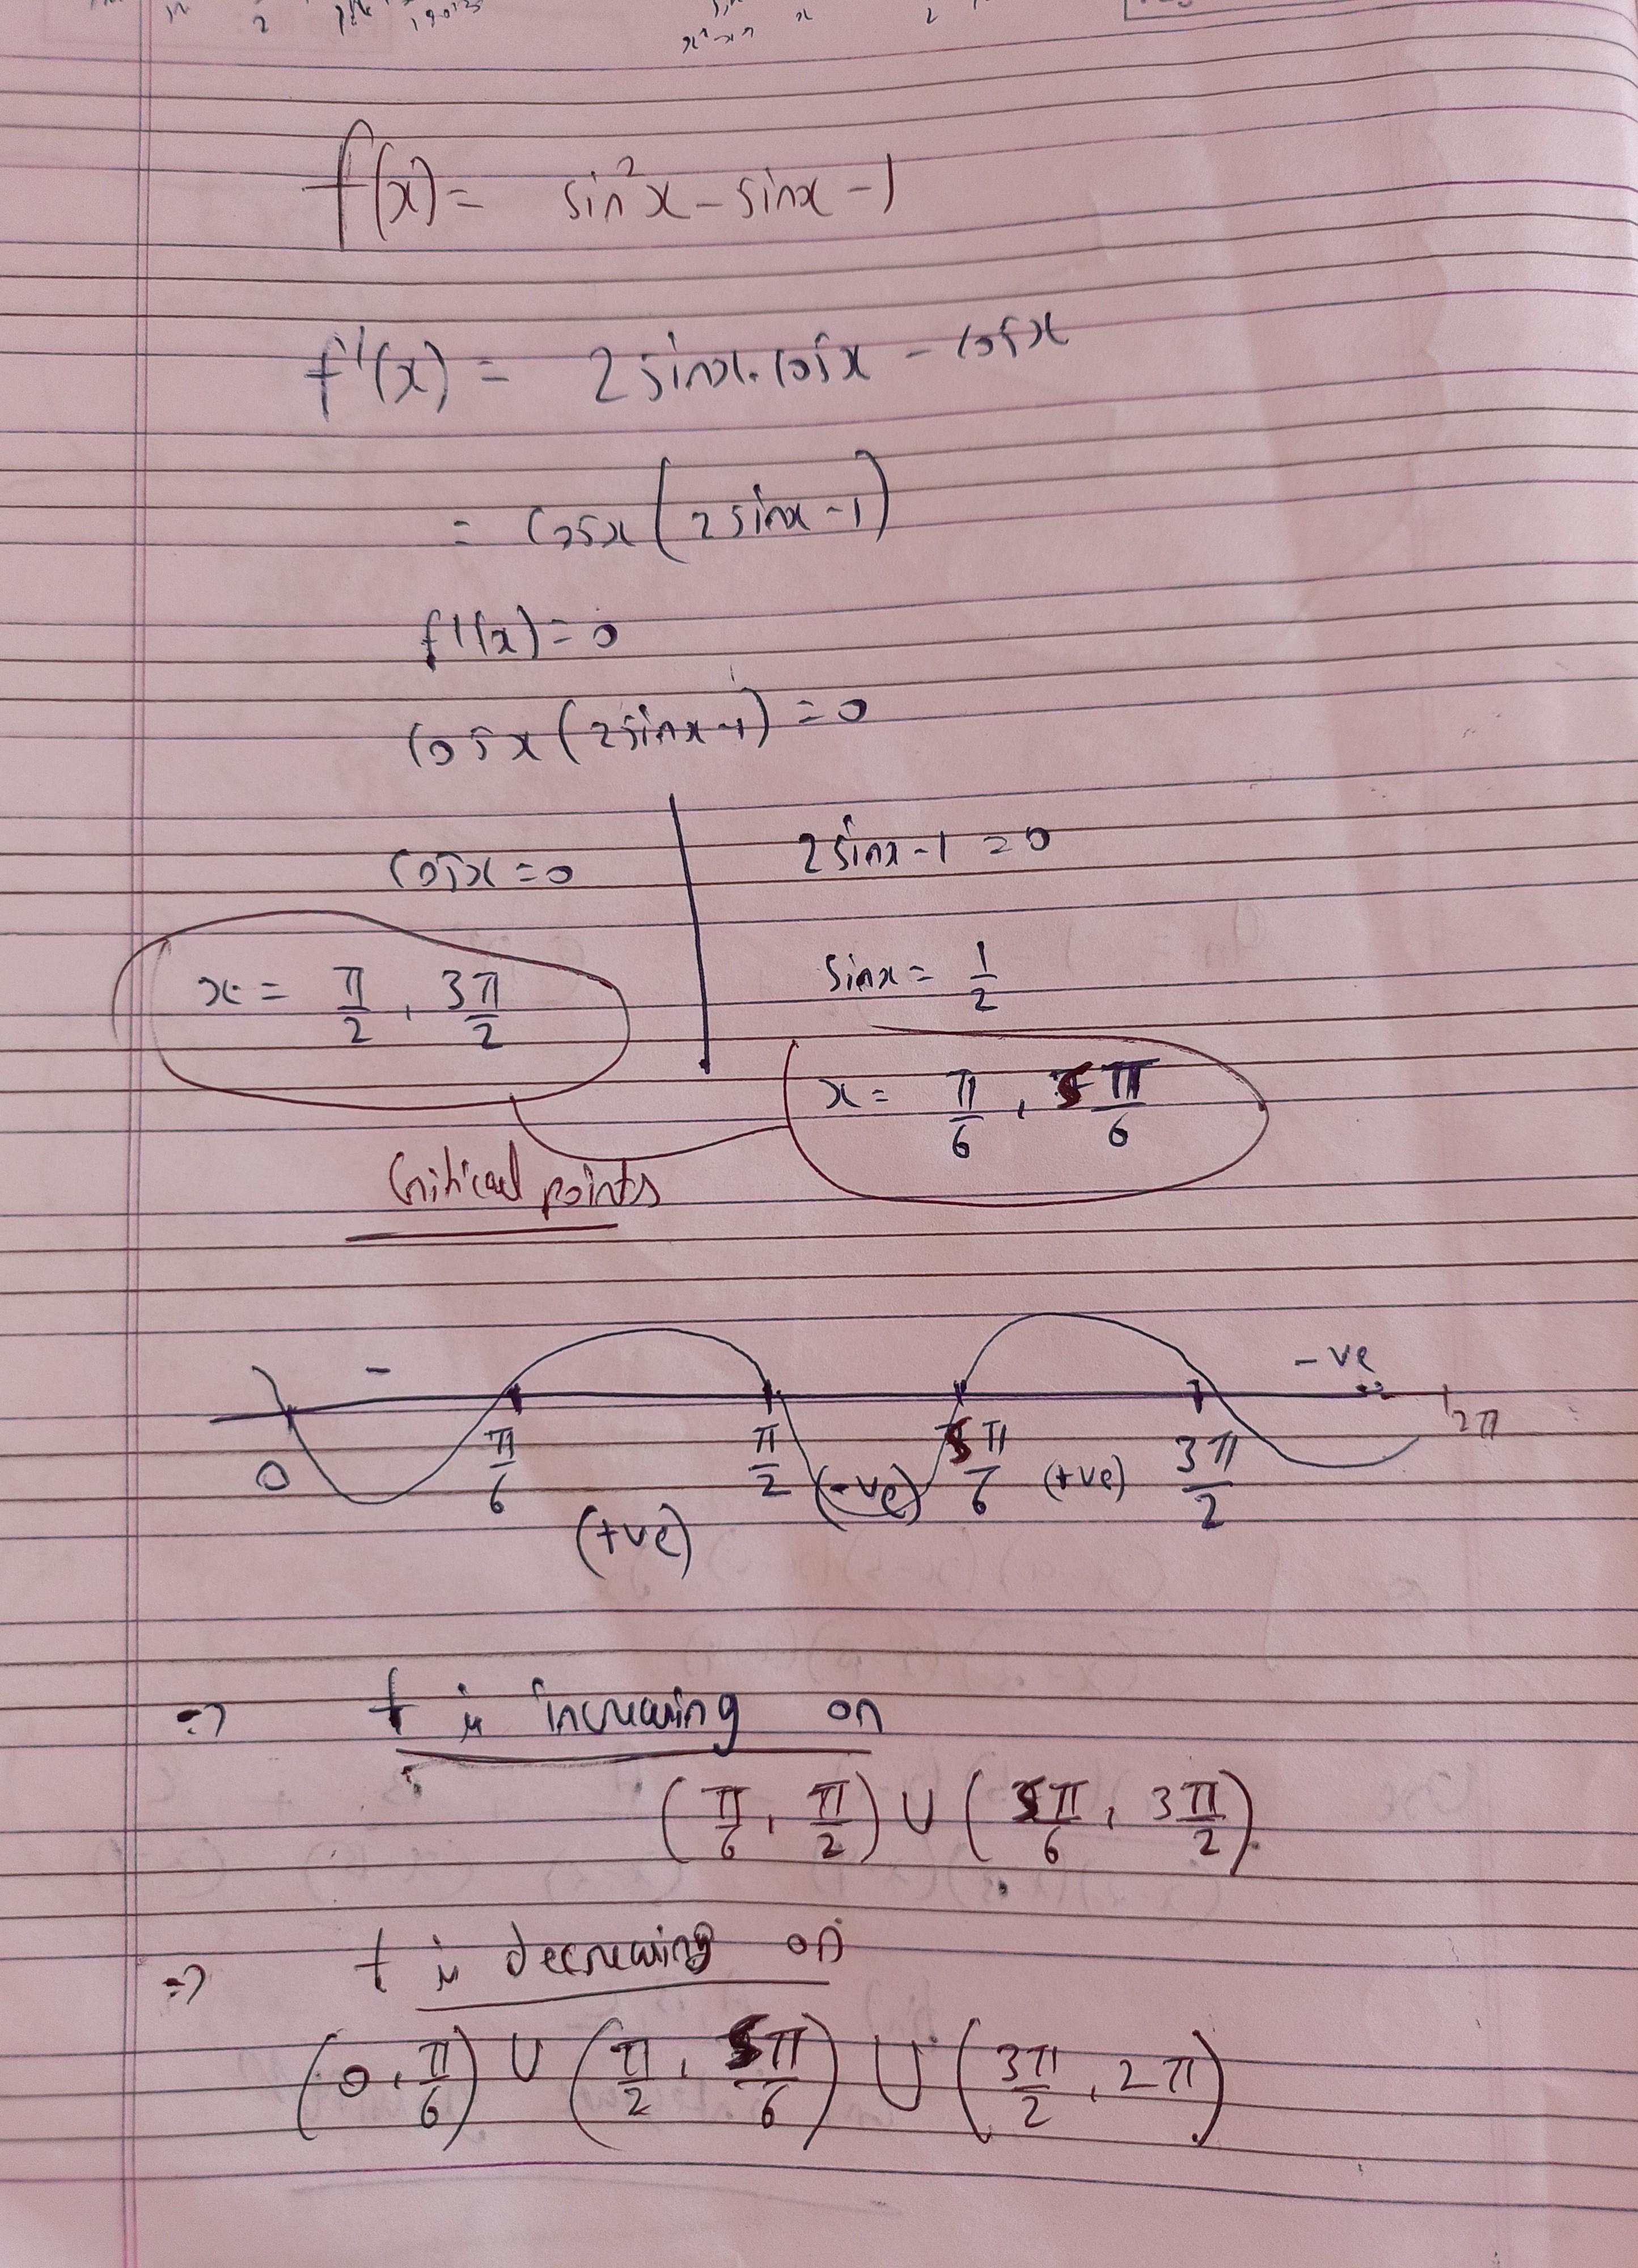 f(x) = sin²x - sinx - 1
f'(x) = 2 sinx. cosx - cosx
= cosx (2 sinx - 1)
f'(x) = 0
cosx (2sinx - 1) = 0
cosx = 0
2 sinx - 1 = 0
x = π/2, 3π/2
sinx = 1/2
x = π/6, 5π/6
Critical points
- -ve
0 π/6 π/2 (-ve) 5π/6 (+ve) 3π/2 2π
(+ve)
=> f is increasing on
(π/6, π/2) ∪ (5π/6, 3π/2).
=> f is decreasing on
(0, π/6) ∪ (π/2, 5π/6) ∪ (3π/2, 2π)